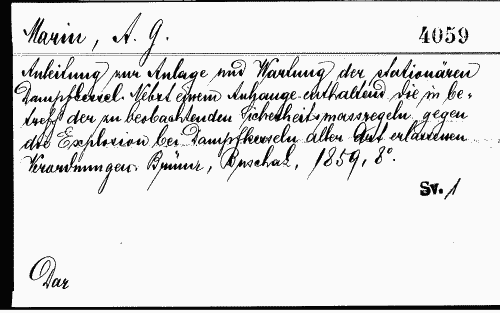 Marin, A. G.
4059
Anleitung zur Anlage und Wartung der stationären
Dampfkessel. Nebst einem Anhange enthaltend die in be-
treff der zu beobachtenden Sicherheitsmassregeln gegen
die Explosion bei Dampfkesseln aller Art erlassenen
Verordnungen. Brünn, Buschak, 1859, 8°.
Sv. 1
Dar